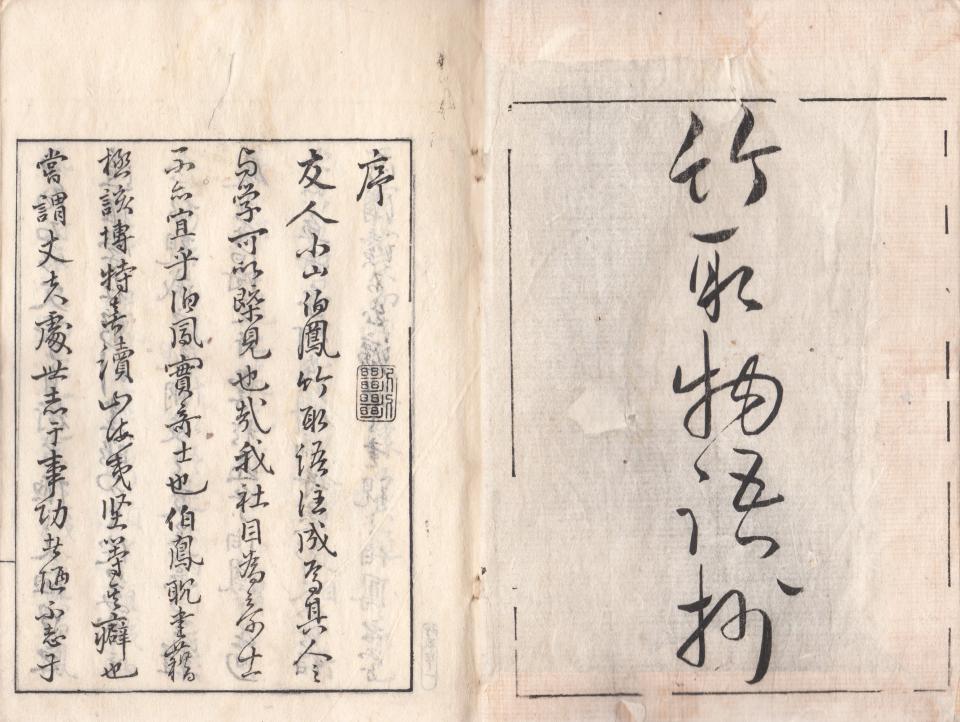 竹取物語抄
序
友人小山伯鳳竹取語注成為具人
与学可以槩見也哉我社目為奇士
不亦宜乎伯鳳實奇士也伯鳳耽書籍
極該博特喜讀山海夷堅等書癖也
嘗謂丈夫處世志于事功者須不志于